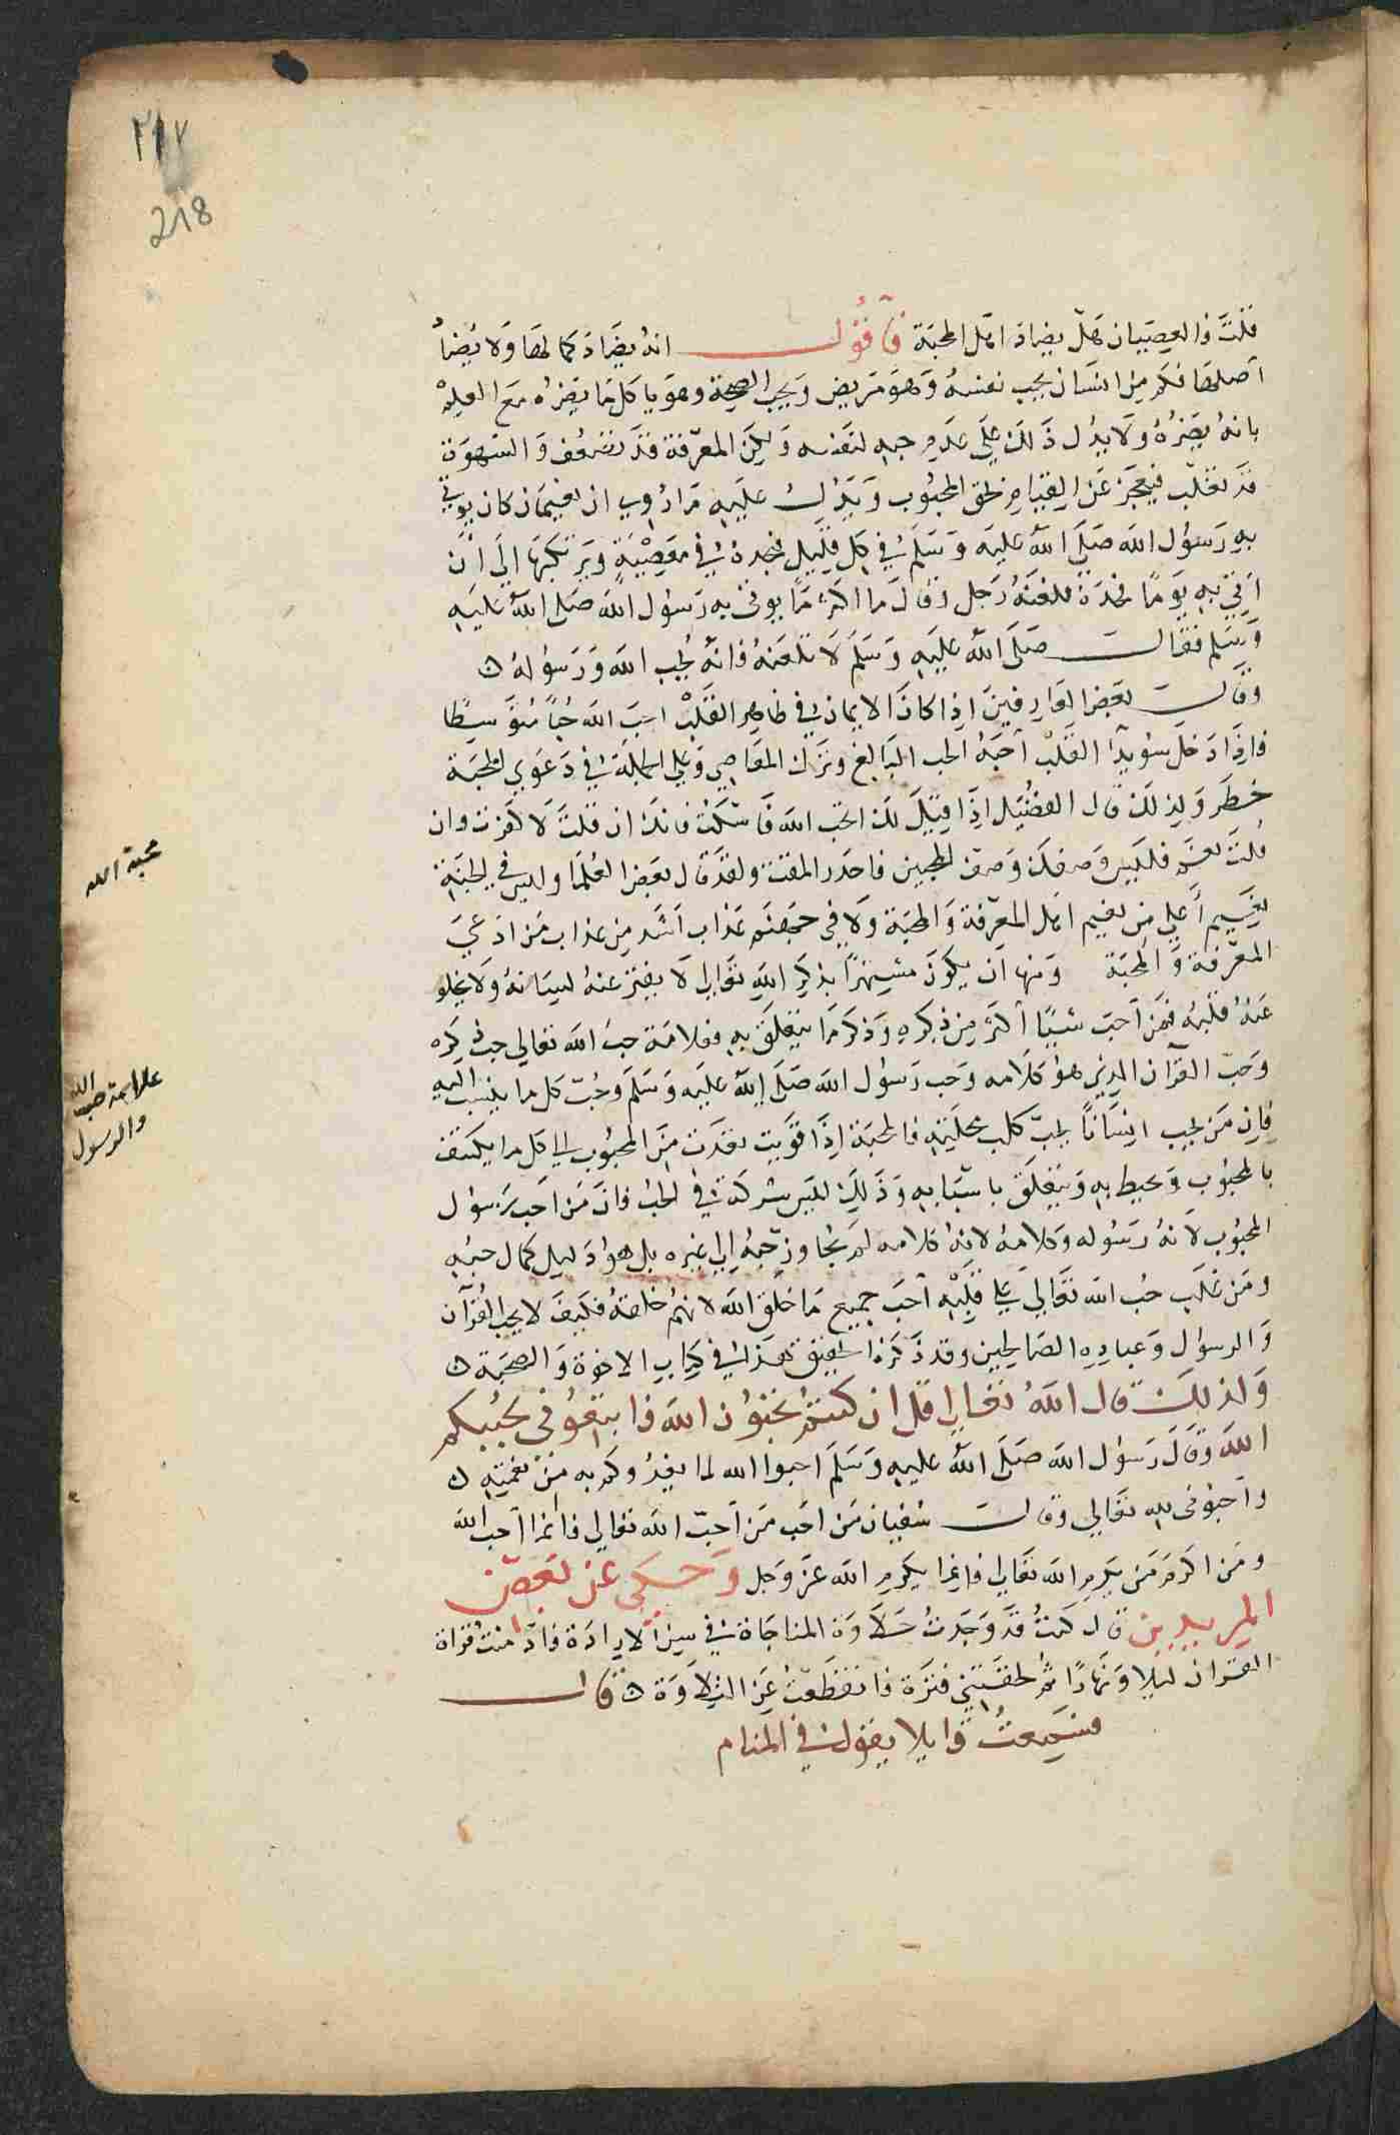 ٢١٧
218
قلت فالعصيان هل يضاد اصل المحبة فاقول انه يضاد كمالها ولا يضاد
اصلها فكم من انسان يحب نفسه وهو مريض ويحب الصحة وهو ياكل ما يضره مع العلم
بانه يضره ولا يدل ذلك على عدم حبه لنفسه ولكن المعرفة قد تضعف والشهوة
قد تغلب فيعجز عن القيام بحق المحبوب ويدل عليه ما روي ان نعيمان كان يوتى
به رسول الله صلى الله عليه وسلم في كل قليل فيحده في معصية ويرتكبها الى ان
اتي به يوما فحده فلعنه رجل وقال ما اكثر ما يوتى به رسول الله صلى الله عليه
وسلم فقال صلى الله عليه وسلم لا تلعنه فانه يحب الله ورسوله ٥
وقال بعض العارفين اذا كان الايمان في ظاهر القلب احب الله حبا متوسطا
فاذا دخل سويدا القلب احبه الحب البالغ وترك المعاصي وعلى الجملة في دعوى المحبة
خطر ولذلك قال الفضيل اذا قيل لك اتحب الله فاسكت فانك ان قلت لا كفرت وان
قلت نعم فليس وصفك وصف المحبين فاحدر المقت ولقد قال بعض العلما وليس في الجنة
نعيم اعلى من نعيم اهل المعرفة والمحبة ولا في جهنم عذاب اشد من عذاب من ادعى
المعرفة والمحبة ومنها ان يكون مستهترا بذكر الله تعالى لا يفتر عنه لسانه ولا يخلو
عنه قلبه فمن احب شيا اكثر من ذكره وذكر ما يتعلق به فعلامة حب الله تعالى حب ذكره
وحب القران الذي هو كلامه وحب رسول الله صلى الله عليه وسلم وحب كل ما ينسب اليه
فان من يحب انسانا يحب كلب محلته فالمحبة اذا قويت تعدت من المحبوب الى كل ما يكتنف
بالمحبوب ويحيط به ويتعلق باسبابه وذلك ليس شركة في الحب فان من احب رسول
المحبوب لانه رسوله وكلامه لانه كلامه لم يجاوز حبه الى غيره بل هو دليل كمال حبه
ومن غلب حب الله تعالى على قلبه احب جميع ما خلق الله لانهم خلقه فكيف لا يحب القرآن
والرسول وعباده الصالحين وقد ذكرنا تحقيق هذا في كتاب الاخوة والصحبة ٥
ولذلك قال الله تعالى قل ان كنتم تحبون الله فاتبعوني يحببكم
الله وقال رسول الله صلى الله عليه وسلم احبوا الله لما يغذوكم به من نعمته ٥
واحبوني لله تعالى وقال سفيان من احب من احب الله تعالى فانما احب الله
ومن اكرم من يكرم الله تعالى فانما يكرم الله عز وجل وحكى عن بعض
المريدين قال كنت قد وجدت حلاوة المناجاة في سن الارادة فادمنت قراة
القران ليلا ونهارا ثم لحقتني فترة فانقطعت عن التلاوة ٥ قال
فسمعت قايلا يقول في المنام
محبة الله
علامة حب الله
والرسول